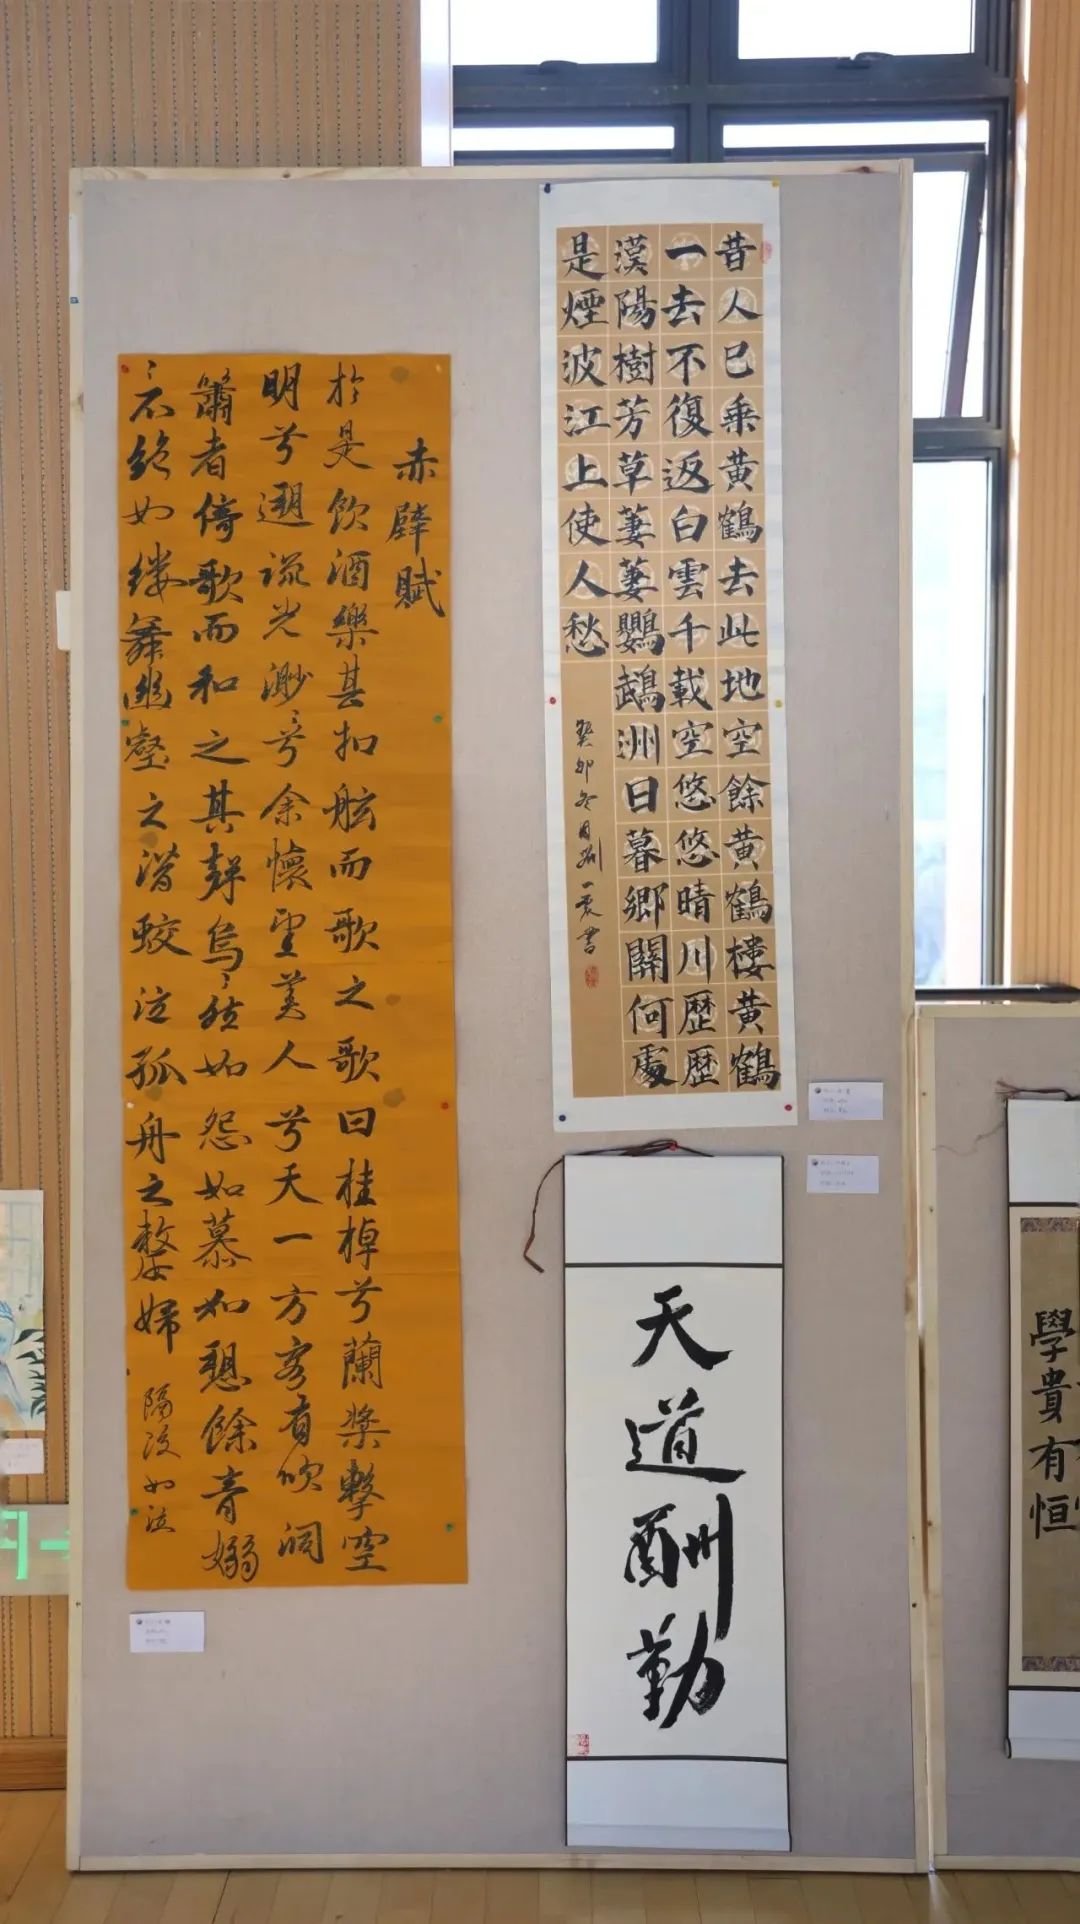 赤壁賦
於是飲酒樂甚扣舷而歌之歌曰桂棹兮蘭槳擊空
明兮遡流光渺〻兮余懷望美人兮天一方客有吹洞
簫者倚歌而和之其聲烏〻然如怨如慕如愬餘音嫋
〻不絕如缕舞幽壑之潛蛟泣孤舟之嫠婦
昔人已乘黄鶴去此地空餘黄鶴楼黄鶴
一去不復返白雲千載空悠悠晴川歷歷
漢陽樹芳草萋萋鸚鵡洲日暮鄉關何處
是煙波江上使人愁
癸卯冬月
天道酬勤
學貴有恒